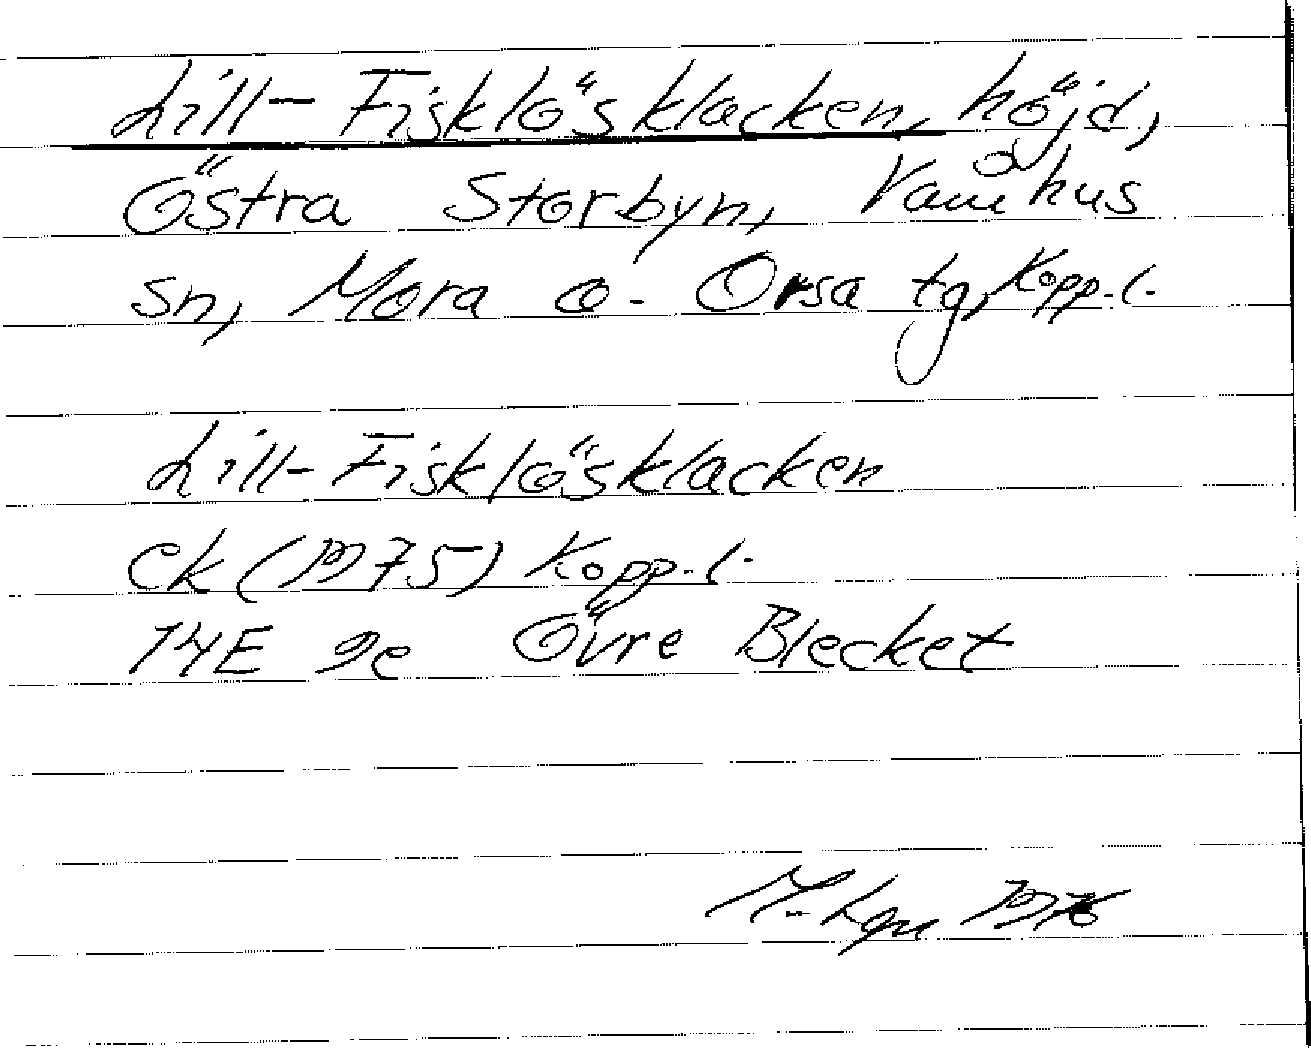 Lill-Fisklösklacken, höjd,
Östra Storbyn, Våmhus
sn, Mora o. Orsa tg, Kopp.l.
Lill-Fisklösklacken
Ek (1975) Kopp.l.
14E 9e Övre Blecket
M. 1976